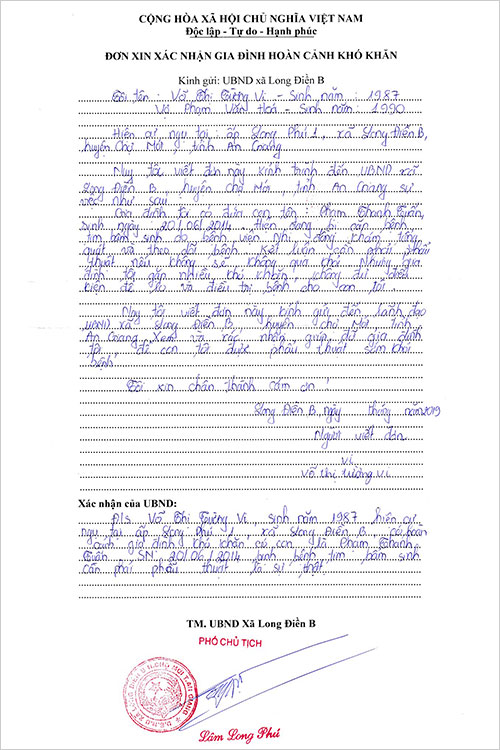 CỘNG HÒA XÃ HỘI CHỦ NGHĨA VIỆT NAM
Độc lập - Tự do - Hạnh phúc
ĐƠN XIN XÁC NHẬN GIA ĐÌNH HOÀN CẢNH KHÓ KHĂN
Kính gửi: UBND xã Long Điền B
Tôi tên : Võ Thị Tường Vi - Sinh năm : 1987
Và Phạm Văn Hoá - Sinh năm : 1990
Hiện cư ngụ tại : ấp Long Phú 1, xã Long Điền B,
huyện Chợ Mới, tỉnh An Giang
Nay tôi viết đơn này kính trình đến UBND xã
Long Điền B, huyện Chợ Mới, tỉnh An Giang sự
việc như sau
Gia đình tôi có đứa con tên : Phạm Thanh Tuấn,
sinh ngày 20/06/2014, Hiện đang bị căp bệnh
tim bẩm sinh do bệnh viện Nhi đồng khám tổng
quát và theo dõi bệnh. Kết luận cần phải phẩu
thuật nếu không sẽ không qua khỏi. Nhưng gia
đình tôi gặp nhiều khó khăn, không đủ điều
kiện để lo và điều trị bệnh cho con tôi.
Nay tôi viết đơn này kính gửi đến lãnh đạo
UBND xã Long Điền B, huyện chợ Mới, tỉnh
An Giang xem và xác nhận giúp đỡ gia đình
tôi, để con tôi được phẩu thuật sớm khỏi
bệnh
Tôi xin chân thành cám ơn !
Long Điền B, ngày tháng năm 2019
Người viết đơn
Vi
Võ thị tường Vi
Xác nhận của UBND:
Đ/s Võ Thị Tường Vi, sinh năm 1987 hiện cư
ngụ tại ấp Long Phú 1, xã Long Điền B, có hoàn
cảnh gia đình khó khăn có con là Phạm Thanh
Tuấn, SN 20/06/2014 bệnh tim bẩm sinh
cần phải phẩu thuật là sự thật.
TM. UBND Xã Long Điền B
PHÓ CHỦ TỊCH
Lâm Long Phú